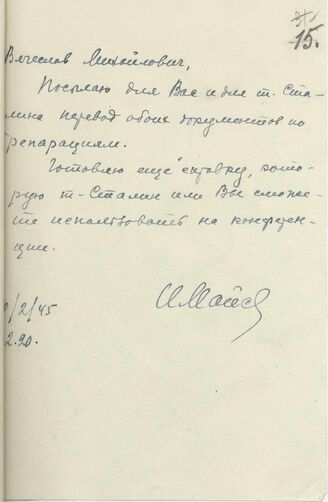 15.
Вячеслав Михайлович,
Посылаю для Вас и для т. Ста-
лина перевод обоих документов по
репарациям.
Готовлю еще справку, кото-
рую т. Сталин или Вы сможе-
те использовать на конферен-
ции.
И Майск
/2/45
2.20.